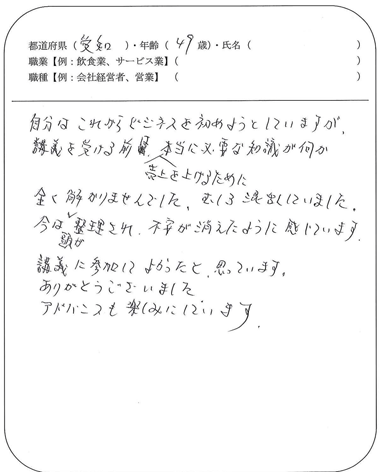 都道府県(愛知)・年齢(49歳)・氏名( )
職業【例:飲食業、サービス業】( )
職種【例:会社経営者、営業】( )
自分はこれからビジネスを初めようとしていますが、
講義を受ける前 本当に必要な知識が何か
売上を上げるために
全く解かりませんでした。むしろ混乱していました。
今は整理され、不安が消えたように感じています。
頭が
講義に参加してよかったと思っています。
ありがとうございました
アドバンスも楽しみにしています.